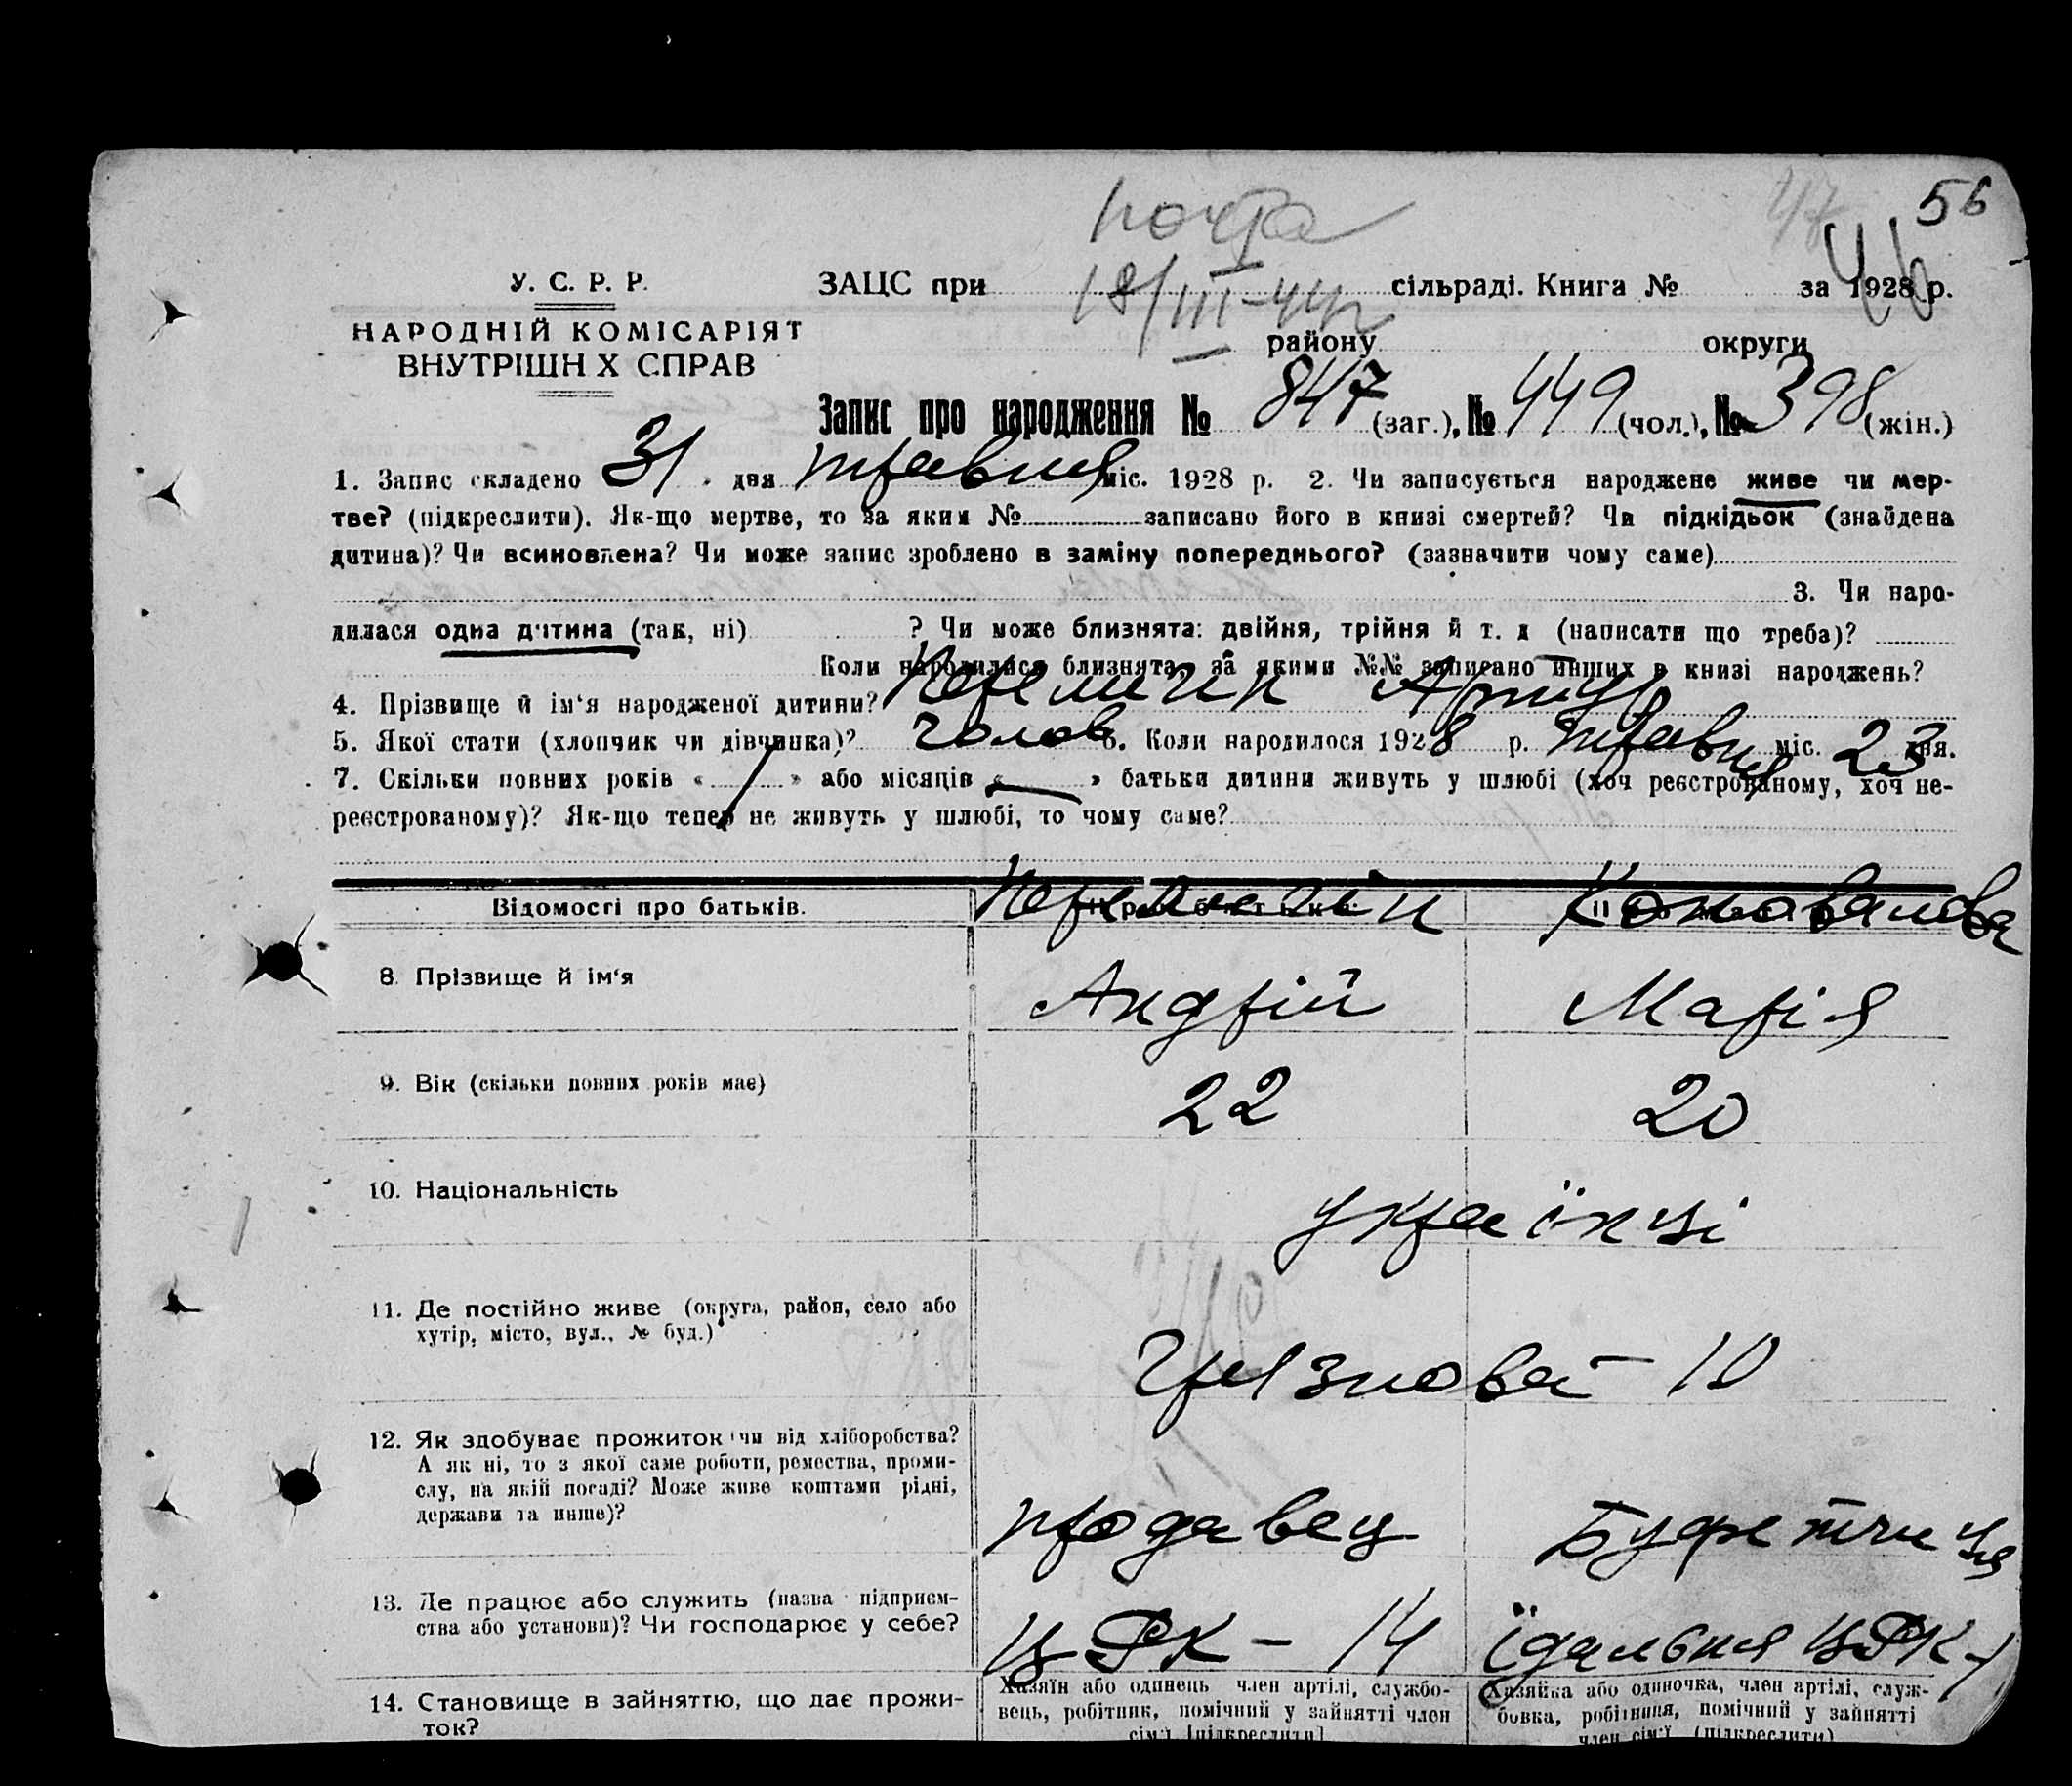 почта
47
56
46
У. С. Р. Р.
ЗАЦС при 18/III-44р сільраді. Книга № за 1928 р.
НАРОДНІЙ КОМІСАРІЯТ
району округи
ВНУТРІШН Х СПРАВ
Запис про народження № 847 (заг.), № 449 (чол.), № 398 (жін.)
1. Запис складено 31 дня травня міс. 1928 р. 2. Чи записується народжене живе чи мер-
тве? (підкреслити). Як-що мертве, то за яким № записано його в книзі смертей? Чи підкідьок (знайдена
дитина)? Чи всиновлена? Чи може запис зроблено в заміну попереднього? (зазначити чому саме)
3. Чи наро-
дилася одна дитина (так, ні) ? Чи може близнята: двійня, трійня й т. д (написати що треба)?
Коли народилися близнята, за якими №№ записано инших в книзі народжень?
4. Прізвище й ім'я народженої дитини? Артур
5. Якої стати (хлопчик чи дівчинка)? чолов 6. Коли народилося 1928 р. травня міс. 23 дня.
7. Скільки повних років « 1 » або місяців « — » батьки дитини живуть у шлюбі (хоч реєстрованому, хоч не-
реєстрованому)? Як-що тепер не живуть у шлюбі, то чому саме?
Відомості про батьків.
Коновалова
8. Прізвище й ім'я Андрій Марія
9. Вік (скільки повних років має) 22 20
10. Національність українці
11. Де постійно живе (округа, район, село або
хутір, місто, вул., № буд.) Грязнова - 10
12. Як здобуває прожиток чи від хліборобства?
А як ні, то з якої саме роботи, ремества, проми-
слу, на якій посаді? Може живе коштами рідні,
держави та инше)? продавец Буфетчиця
13. Де працює або служить (назва підприєм-
ства або установи)? Чи господарює у себе? ЦРК - 14 їдальня ЦРК-1
14. Становище в зайняттю, що дає прожи-
ток?
Хазяїн або одинець член артілі, службо-
вець, робітник, помічний у зайнятті член
сім'ї [підкреслити]
Хазяйка або одиночка, член артілі, служ-
бовка, робітниця, помічний у зайнятті
член сім'ї (підкреслити)